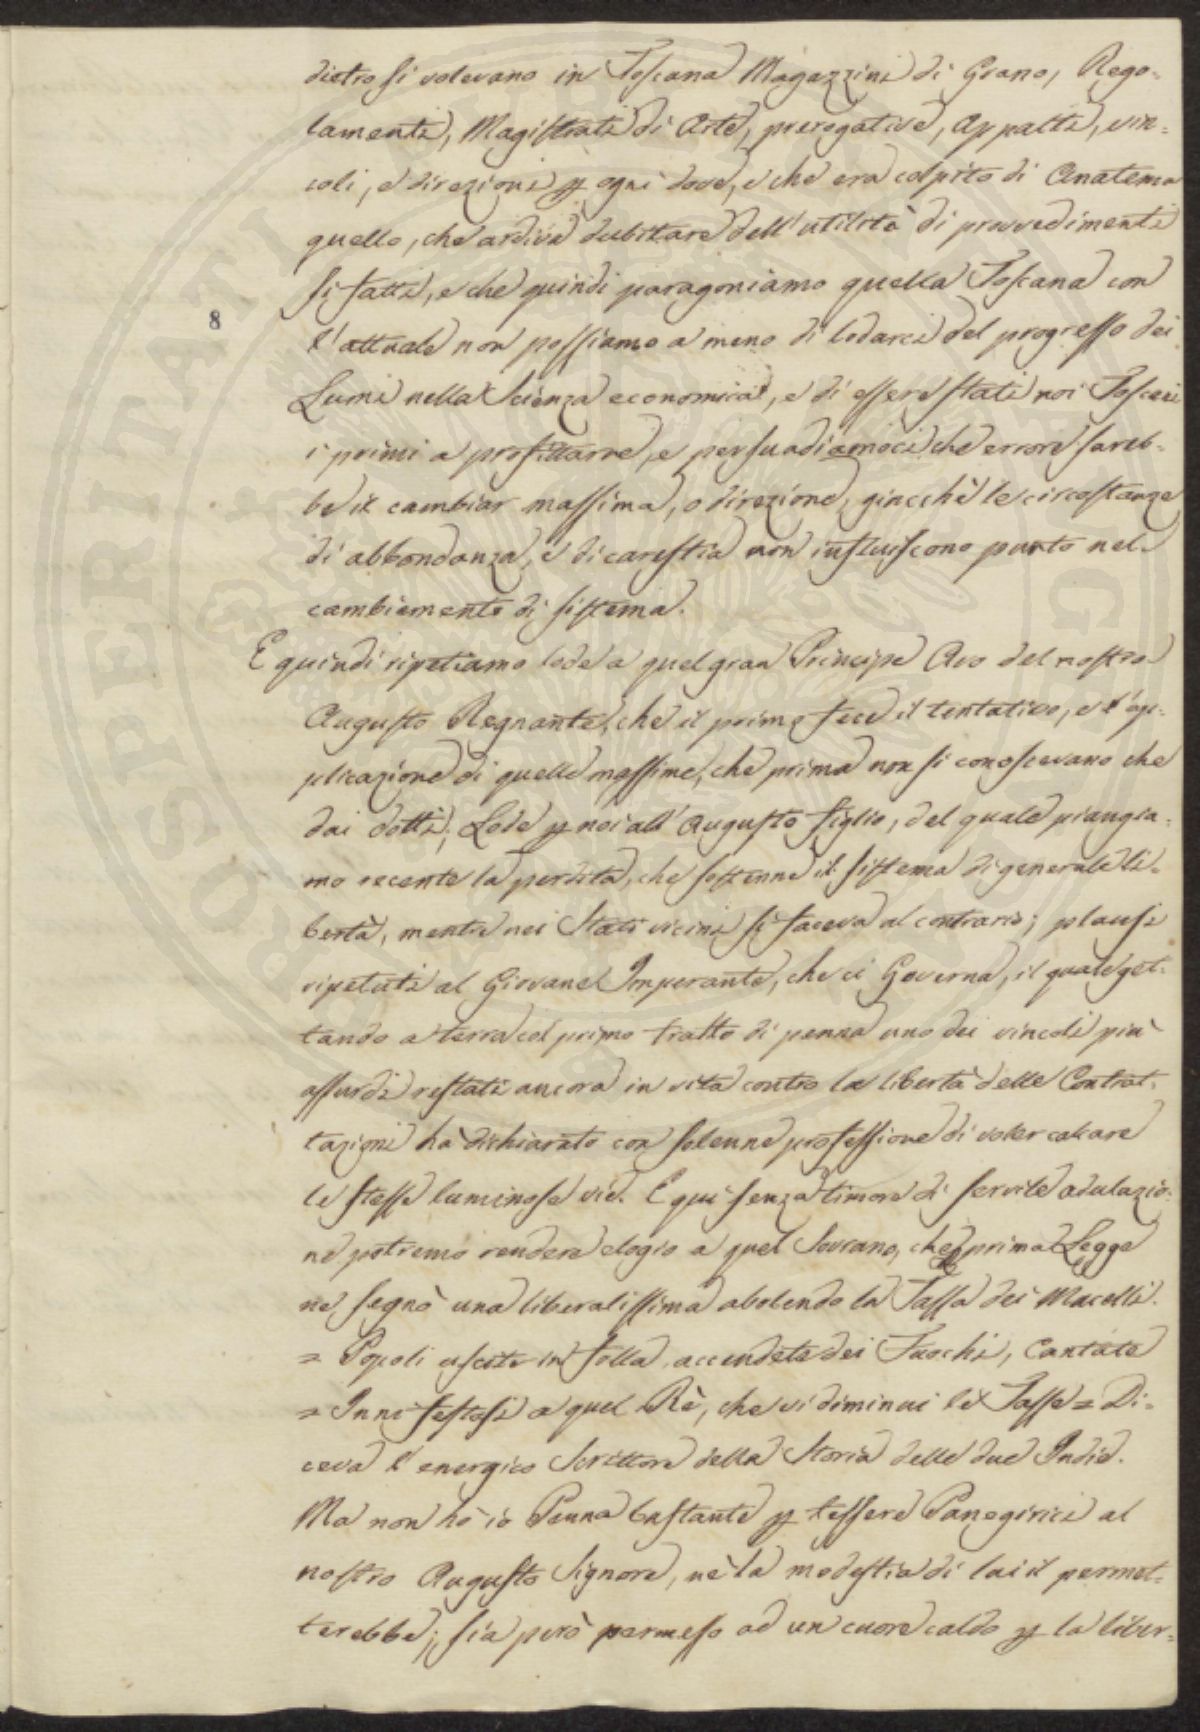 dietro si volevano in Toscana Magazzini di Grano, Rego-
lamenti, Magistrati di Arte, prerogative, Appalti, vin=
coli, e direzioni p ogni dove, e che era colpito di Anatema
quello, che ardiva dubitare dell'utilità di provvedimenti
si fatti, e che quindi paragoniamo quella Toscana con
8
l'attuale non possiamo a meno di lodarci del progresso dei
Lumi nella Scienza economica, e di essere stati noi Toscani
i primi a profittarne, e persuadiamoci che errore sareb-
be il cambiar massima, o direzione, giacchè le circostanze
di abbondanza, e di carestia non influiscono punto nel
cambiamento di sistema.
E quindi ripetiamo lode a quel gran Principe Avo del nostro
Augusto Regnante, che il primo fece il tentativo, e l'ap-
plicazione di quelle massime, che prima non si conoscevano che
dai dotti; Lode p noi all'Augusto figlio, del quale piangia-
mo recente la perdita, che sostenne il sistema di generale li-
bertà, mentre nei Stati vicini si faceva al contrario; plausi
ripetuti al Giovane Imperante, che ci Governa, il quale get-
tando a terra col primo tratto di penna uno dei vincoli più
assurdi restati ancora in vita contro la libertà delle Contrat-
tazioni ha dichiarato con solenne professione di voler calcare
le stesse luminose vie. E qui senza timore di servile adulazio-
ne potremo rendere elogio a quel Sovrano, che p prima Legge
ne segnò una liberalissima abolendo la Tassa dei Macelli.
= Popoli uscite in folla, accendete dei Fuochi, Cantate
= Inni festosi a quel Rè, che vi diminuì le Tasse = Di=
ceva l'energico Scrittore della Storia delle due Indie.
Ma non hò io Penna bastante p tessere Panegirici al
nostro Augusto Signore, nè la modestia di lui il permet-
terebbe; sia però permesso ad un cuore caldo p la liber=
PROSPERITATI PUBLICAE